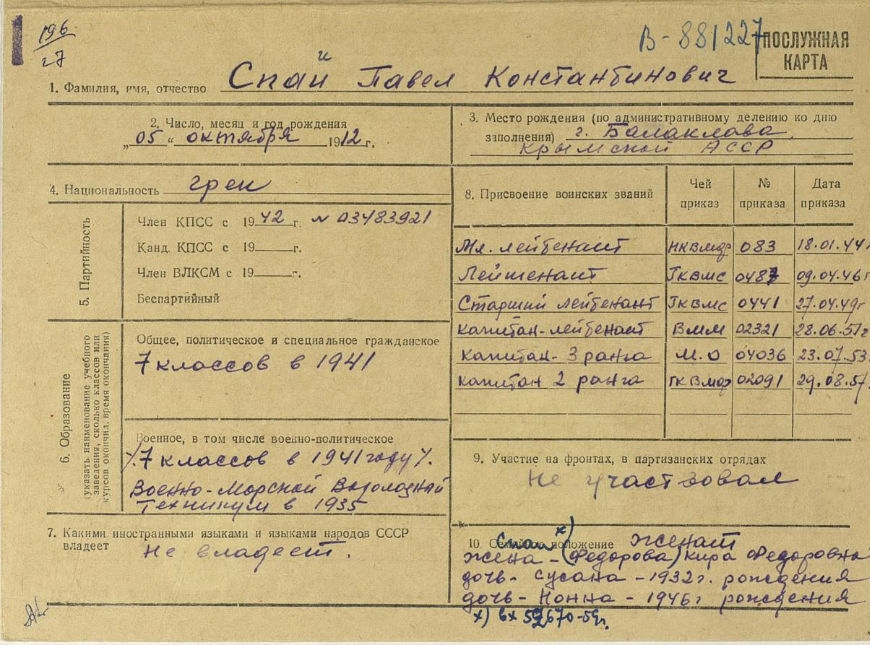 196
27
В-881227
ПОСЛУЖНАЯ
КАРТА
1. Фамилия, имя, отчество Спай Павел Константинович
2. Число, месяц и год рождения
„05“ октября 1912 г.
3. Место рождения (по административному делению ко дню
заполнения) г. Балаклава
Крымской АССР
4. Национальность грек
5. Партийность
Член КПСС с 1942 г. № 03483921
Канд. КПСС с 19 г.
Член ВЛКСМ с 19 г.
Беспартийный
6. Образование
(указать наименование учебного
заведения, сколько классов или
курсов окончил, время окончания)
Общее, политическое и специальное гражданское
7 классов в 1941
Военное, в том числе военно-политическое
7 классов в 1941 году
Военно-Морской Водолазный
Техникум в 1935
7. Какими иностранными языками и языками народов СССР
владеет Не владеет.
8. Присвоение воинских званий Чей приказ № приказа Дата приказа
Мл. лейтенант НКВМФ 083 18.01.44г
Лейтенант ГКВМС 0487 09.04.46г
Старший лейтенант ГКВМС 0441 27.04.49г
Капитан-лейтенант ВММ 02321 28.06.51г
Капитан-3 ранга М.О 04036 23.07.53
капитан 2 ранга ГКВМФ 02091 29.08.57
9. Участие на фронтах, в партизанских отрядах
Не участвовал
10. Семейное положение Женат
Спай х)
жена - (Федорова) Кира Федоровна
дочь - Сусана - 1932г. рождения
дочь - Нонна - 1946г рождения
х) вх 59670-59г.